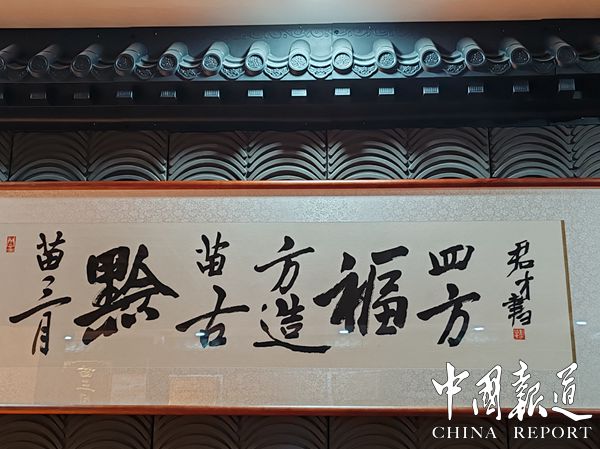 苗三月
黔
苗古
方造
福
四方
君才書
中國報道
CHINA REPORT